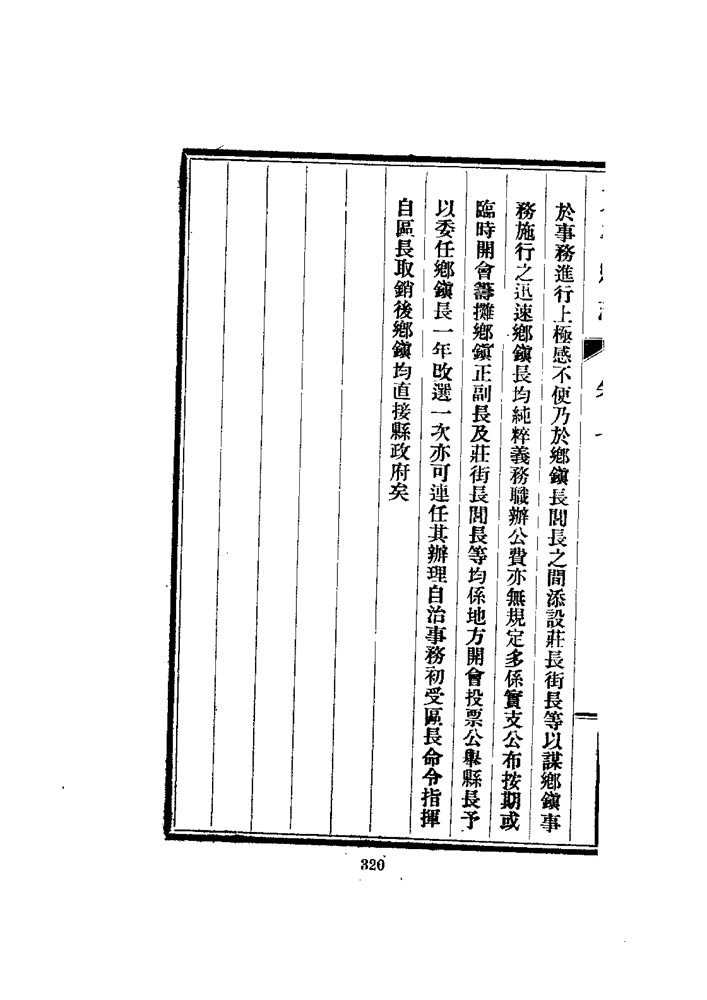 於事務進行上極感不便乃於鄉鎭長閭長之間添設莊長街長等以謀鄉鎭事
務施行之迅速鄉鎭長均純粹義務職辦公費亦無規定多係實支公布按期或
臨時開會籌攤鄉鎭正副長及莊街長閭長等均係地方開會投票公舉縣長予
以委任鄉鎭長一年改選一次亦可連任其辦理自治事務初受區長命令指揮
自區長取銷後鄉鎭均直接縣政府矣
320